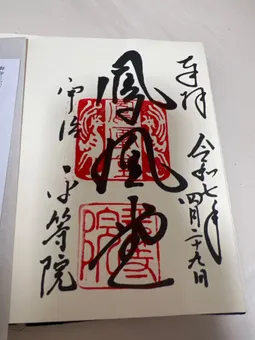 奉拝
令和七年
四月二十九日
鳳凰堂
宇治 平等院